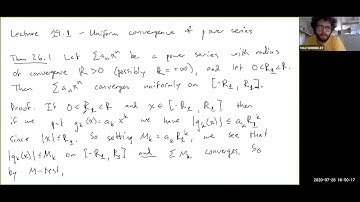 Lecture 19.1 - Uniform convergence of power series
Thm 26.1 Let Σaₙxⁿ be a power series with radius
of convergence R>0 (possibly R=+∞), and let 0<R₁<R.
Then Σaₙxⁿ converges uniformly on [-R₁, R₁].
Proof. If 0<R₁<R and x∈[-R₁, R₁] then
if we put gₖ(x)=aₖxᵏ we have |gₖ(x)|≤aₖR₁ᵏ
since |x|≤R₁. So setting Mₖ=aₖR₁ᵏ, we see that
|gₖ(x)|≤Mₖ on [-R₁, R₁] and ΣMₖ converges, so
by M-test,
2020-07-28 16:50:17